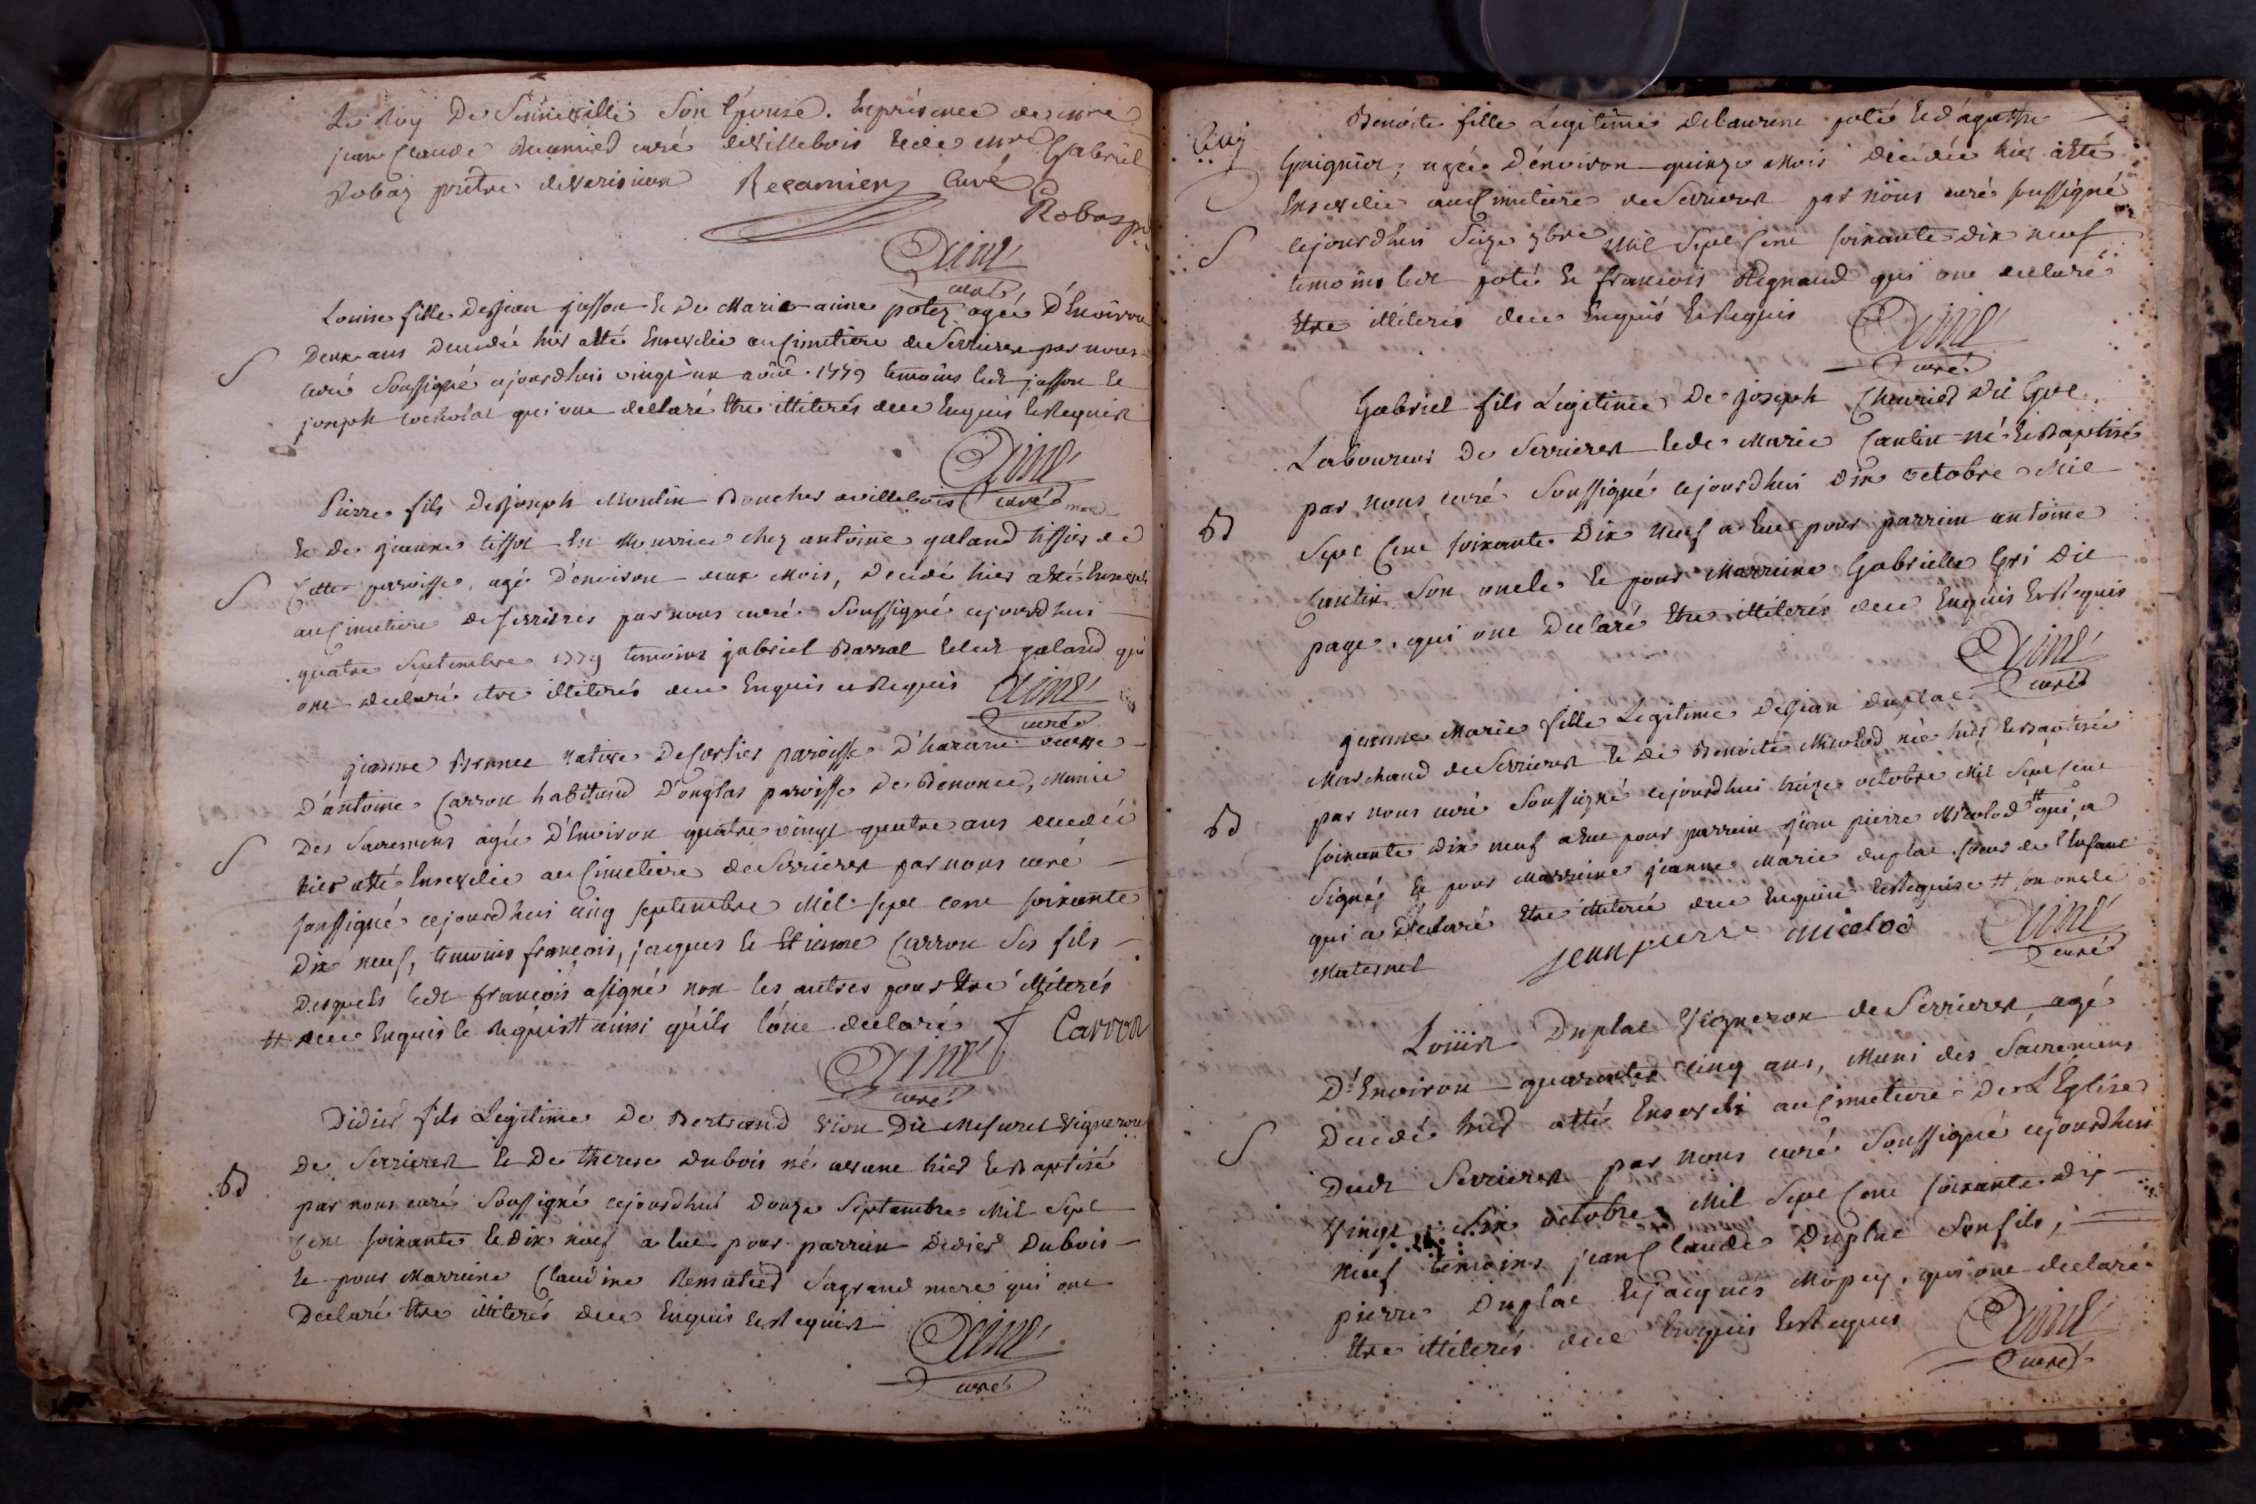 Le Roy De Senneville Son Epouse. En présence de mre
jean Claude Recamier curé de Villebois et de mre Gabriel
Robaz prêtre de
Recamier Curé
Robas p
Aimé
curé
Louise fille De jean jasson Et De Marie anne potez agée D'Environ
Deux ans Decedée hier a été Ensevelie au Cimetiere de Serrieres par nous
curé Soussigné cejourdhui vingt un aout 1779 temoins led jasson Et
joseph qui ont declaré Etre illiterés de ce Enquis Et Requis
Aimé
curé
Pierre fils De joseph Moulin Boucher a villebois
Et de jeanne tissot En Nourrice chez antoine galand tissier de
Cette paroisse, agé d'environ deux Mois, Decedé hier a été Enseveli
au Cimetiere de serrieres par nous curé Soussigné cejourdhui
quatre Septembre 1779 temoins gabriel Barral et led galand qui
ont declaré etre illiterés de ce Enquis et Requis
Aimé
curé
jeanne Brunet Native De paroisse D' veuve
D'antoine Carron habitant D'onglas paroisse De Benonce, Munie
Des Sacremens agée D'Environ quatre vingt quatre ans decedée
hier a été Ensevelie au Cimetiere de Serrieres par nous curé
soussigné cejourdhui cinq septembre Mil sept cent soixante
Dix neuf, temoins françois, jacques Et Etienne Carron Ses fils
Desquels led françois a signé non les autres pour Etre illiterés
# de ce Enquis Et Requis # ainsi qu'ils l'ont declaré
f Carron
Aimé
curé
Didier fils Legitime De Bertrand Dit Vigneron
De Serrieres Et De therese Dubois né hier Et Baptisé
par nous curé Soussigné cejourdhui Douze Septembre Mil Sept
Cent soixante et Dix neuf a Eut pour parrein Didier Dubois
Et pour Marreine Claudine Sa grand mere qui ont
Declaré Etre illiterés de ce Enquis Et Requis
Aimé
curé
Benoite fille Légitime De laurent poté Et d'agathe
agée D'environ quinze Mois Decedée hier a été
Ensevelie au Cimetiere de Serrieres par nous curé soussigné
cejourdhui Seize 7bre Mil Sept Cent soixante dix neuf
temoins led poté Et françois Regnaud qui ont declaré
Etre illiterés de ce Enquis Et Requis
Aimé
curé
Gabriel fils Légitime De joseph Dit
Laboureur De Serrieres et de Marie Cantin né Et Baptisé
par nous curé Soussigné cejourdhui Dix octobre Mil
Sept Cent soixante Dix Neuf a Eut pour parrein antoine
Cantin Son oncle Et pour Marreine Gabrielle Dit
page, qui ont Declaré Etre illiterés de ce Enquis Et Requis
Aimé
curé
jeanne Marie fille Légitime De jean Duplat
Marchand de Serrieres Et De Benoite Micolod née hier Et Baptisée
par nous curé Soussigné cejourdhui octobre Mil Sept Cent
soixante Dix neuf a Eut pour parrein jean pierre Micolod # qui a
Signé Et pour Marreine jeanne Marie duplat soeur de l'Enfant
qui a Declaré Etre illiterée de ce Enquise Et Requise # son oncle
Maternel
jean pierre micolod
Aimé
curé
Louis Duplat Vigneron de Serrieres agé
D'Environ quarante cinq ans, Muni des Sacremens
Decedé hier a été Enseveli au Cimetiere De L'Eglise
Dudt Serrieres par nous curé Soussigné cejourdhui
Vingt Six octobre Mil Sept Cent soixante dix
Neuf temoins jean Claude Duplat Son fils,
pierre Duplat Et jacques qui ont declaré
Etre illiterés de ce Enquis Et Requis
Aimé
curé